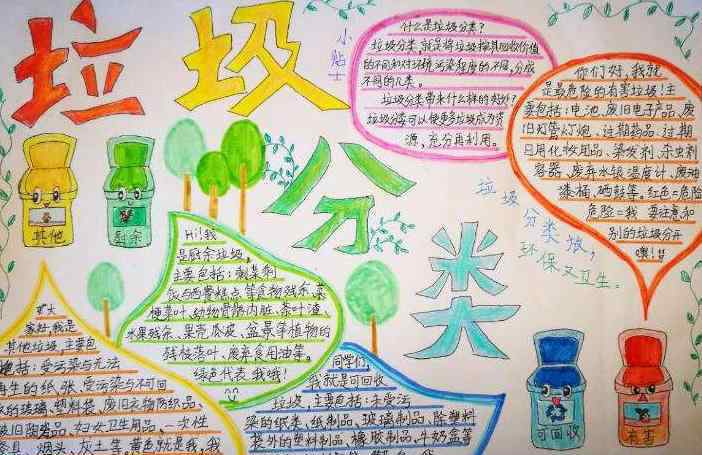 垃圾
分
类
小贴士
什么是垃圾分类?
垃圾分类,就是将垃圾按其回收价值
的不同和对环境污染程度的不同,分成
不同的几类。
垃圾分类带来什么样的好处?
垃圾分类可以使更多垃圾成为资
源,充分再利用。
你们好,我就
是最危险的有害垃圾!主
要包括:电池、废旧电子产品、废
旧灯管灯泡、过期药品、过期
日用化妆用品、染发剂、杀虫剂
容器、废弃水银温度计、废油
漆桶、硒鼓等。红色=危险
危险=我 要注意和
别的垃圾分开
噢!!
垃圾
分类娘,
环保又卫生。
其他
厨余
Hi!我
是厨余垃圾,
主要包括:剩菜剩
饭与西餐糕点等食物残余、菜
梗菜叶、动物骨骼内脏、茶叶渣、
水果残余、果壳瓜皮、盆景等植物的
残枝落叶、废弃食用油等。
绿色代表我哦!
大
家好,我是
其他垃圾,主要包
括:受污染与无法
再生的纸张、受污染与不可回
收的玻璃、塑料袋、废旧衣物防织品、
破旧陶瓷品、妇女卫生用品、一次性
餐具、烟头、灰土等,黄色就是我,我
同学们,
我就是可回收
垃圾,主要包括:未受污
染的纸类、纸制品、玻璃制品、除塑料
袋外的塑料制品、橡胶制品、牛奶盒等
可回收
有害